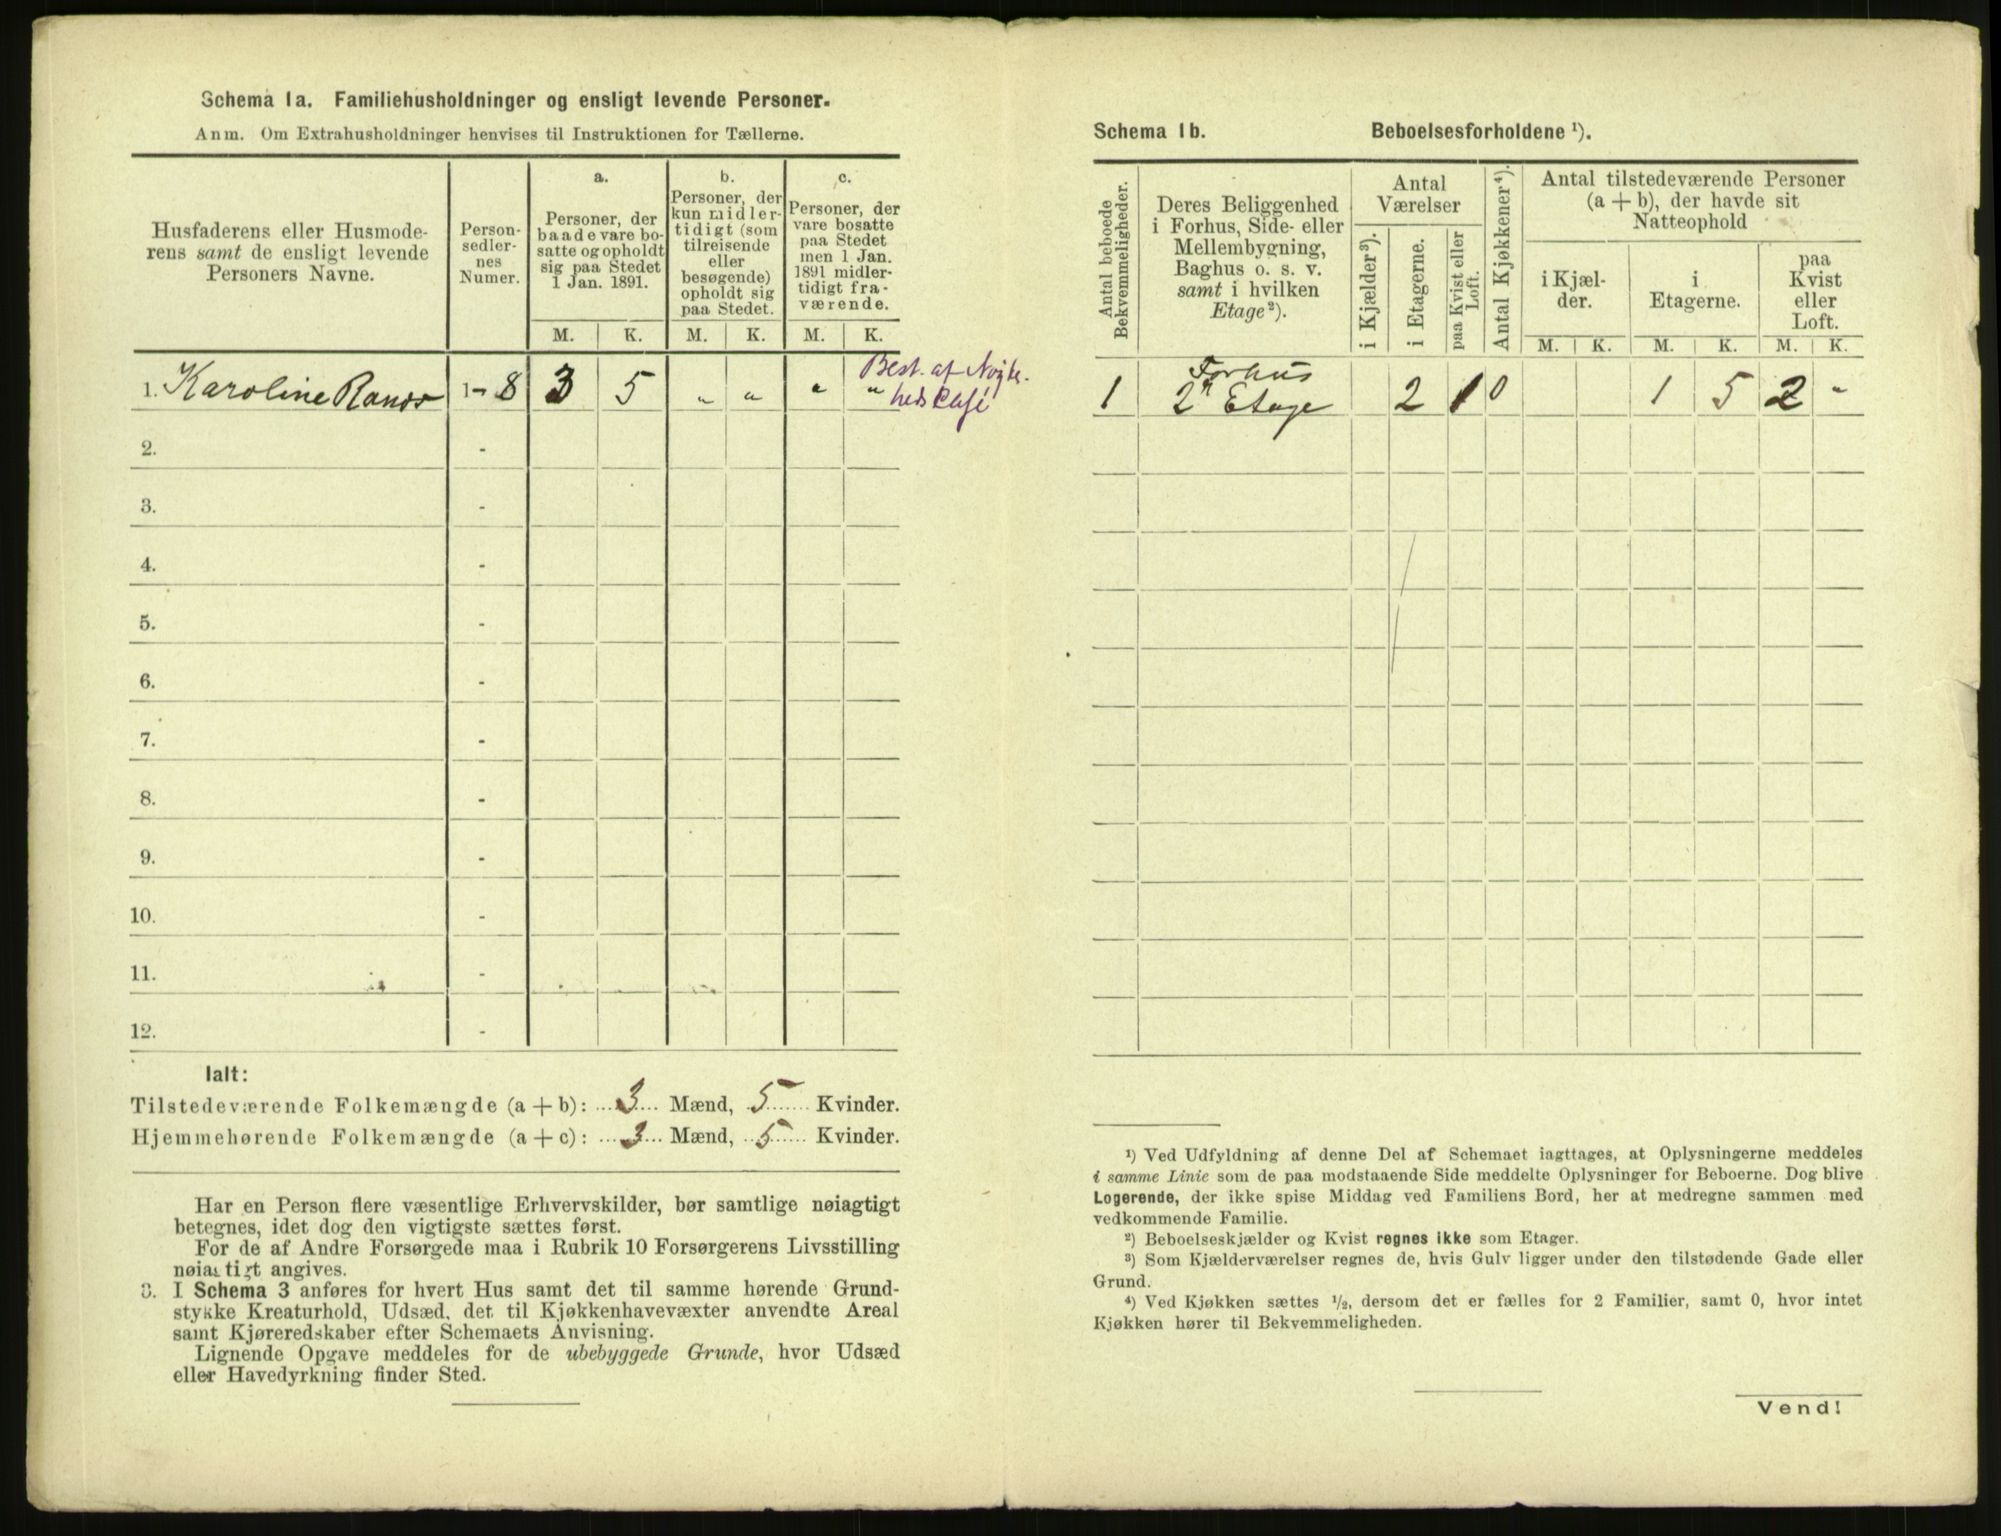 Schema 1a. Familiehusholdninger og ensligt levende Personer.
Anm. Om Extrahusholdninger henvises til Instruktionen for Tællerne.
Husfaderens eller Husmode-
rens samt de ensligt levende
Personers Navne.
Person-
sedler-
nes
Numer.
a.
Personer, der
baade vare bo-
satte og opholdt
sig paa Stedet
1 Jan. 1891.
b.
Personer, der
kun midler-
tidigt (som
tilreisende
eller
besøgende)
opholdt sig
paa Stedet.
c.
Personer, der
vare bosatte
paa Stedet
men 1 Jan.
1891 midler-
tidigt fra-
værende.
M. K. M. K. M. K.
1. Karoline 1-8 3 5 „ „ „ „
Best. af
Café
2. -
3. -
4. -
5. -
6. -
7. -
8. -
9. -
10. -
11. -
12. -
Ialt:
Tilstedeværende Folkemængde (a + b): 3 Mænd, 5 Kvinder.
Hjemmehørende Folkemængde (a + c): 3 Mænd, 5 Kvinder.
Har en Person flere væsentlige Erhvervskilder, bør samtlige nøiagtigt
betegnes, idet dog den vigtigste sættes først.
For de af Andre Forsørgede maa i Rubrik 10 Forsørgerens Livsstilling
nøiagtigt angives.
3. I Schema 3 anføres for hvert Hus samt det til samme hørende Grund-
stykke Kreaturhold, Udsæd, det til Kjøkkenhavevæxter anvendte Areal
samt Kjøreredskaber efter Schemaets Anvisning.
Lignende Opgave meddeles for de ubebyggede Grunde, hvor Udsæd
eller Havedyrkning finder Sted.
Schema 1b. Beboelsesforholdene ¹).
Antal beboede
Bekvemmeligheder.
Deres Beliggenhed
i Forhus, Side- eller
Mellembygning,
Baghus o. s. v.
samt i hvilken
Etage ²).
Antal
Værelser
i Kjælder ³).
i Etagerne.
paa Kvist eller
Loft.
Antal Kjøkkener ⁴).
Antal tilstedeværende Personer
(a + b), der havde sit
Natteophold
i Kjæl-
der.
i
Etagerne.
paa
Kvist
eller
Loft.
M. K. M. K. M. K.
Forhus
1 2ⁿ Etage 2 1 0 1 5 2 „
¹) Ved Udfyldning af denne Del af Schemaet iagttages, at Oplysningerne meddeles
i samme Linie som de paa modstaaende Side meddelte Oplysninger for Beboerne. Dog blive
Logerende, der ikke spise Middag ved Familiens Bord, her at medregne sammen med
vedkommende Familie.
²) Beboelseskjælder og Kvist regnes ikke som Etager.
³) Som Kjælderværelser regnes de, hvis Gulv ligger under den tilstødende Gade eller
Grund.
⁴) Ved Kjøkken sættes ½, dersom det er fælles for 2 Familier, samt 0, hvor intet
Kjøkken hører til Bekvemmeligheden.
Vend!